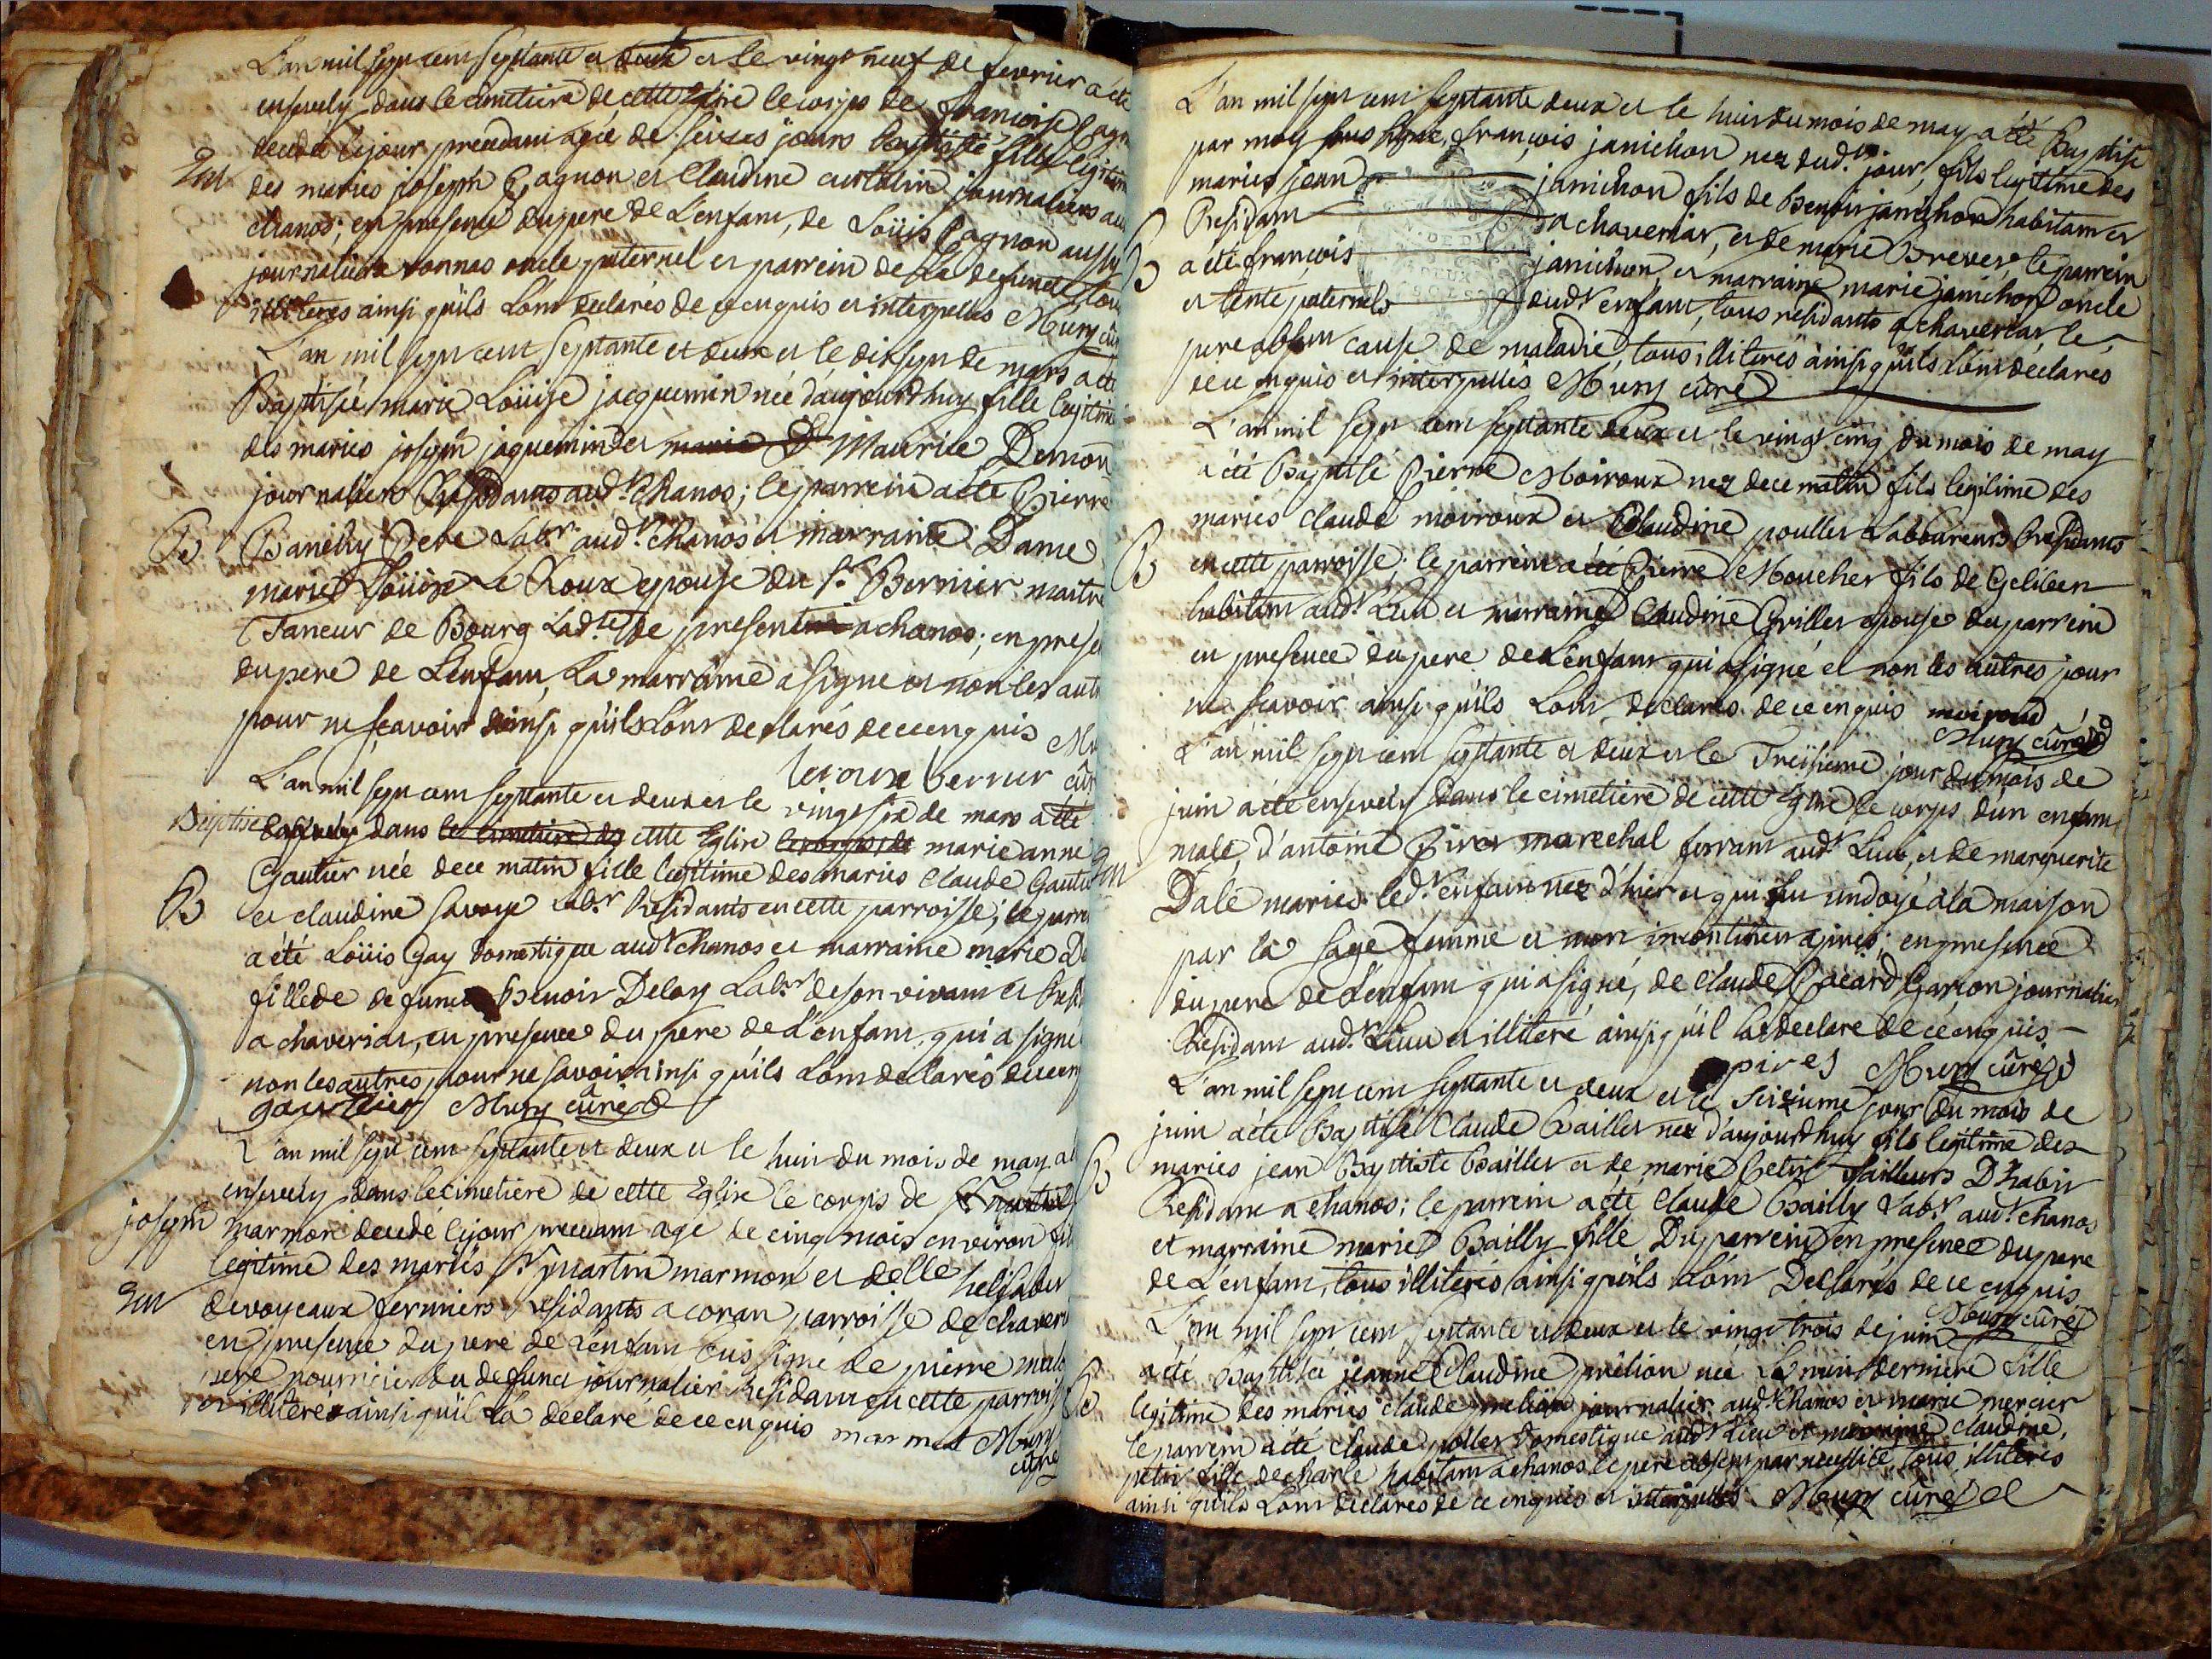 L'an mil sept cent septante et deux et le vingt neuf de fevrier a été
ensevely dans le cimetiere de cette Eglise le corps de françoise
decedé le jour precedant agée de seizes jours fille legitime
Em
des mariés joseph Gagnon et Claudine journaliers au
chanos; en presence du pere de L'enfant, de Loüis Gagnon aussy
journalier a vonnas oncle paternel et parrein de la defuncte, tous
illiterés ainsi qu'ils L'ont declarés de ce enquis et interpellés Mury curé
L'an mil sept cent septante et deux et le dix sept de mars a été
Baptisée marie Loüise jacquemin née d'aujourdhuy fille legitime
des mariés joseph jaquemin et marie Maurise Demon
journaliers Residants aud.t Chanos; le parrein a été Pierre
B
Banchy Pere Lab.r aud.t Chanos et marraine Dame
marie Loüise Le Roux epouse du S.r Bernier maitre
Taneur de Bourg Lad.te de present a chanos; en prese
du pere de L'enfant, La marraine a signé et non les aut
pour ne sçavoir ainsi qu'ils L'ont declarés de ce enquis
leroux bernier Mury curé
L'an mil sept cent septante et deux et le vingt six de mars a été
Baptisé dans le cimetiere de cette Eglise le corps de marie anne
Gautier née de ce matin fille legitime des mariés Claude Gautie
B
et claudine Savoye Lab.r Residants en cette parroisse; le parre
a été Loüis Gay domestique aud.t Chanos et marraine marie D
fille de defunct Benoit Deloy Lab.r de son vivant et Resid
a chaveriat, en presence du pere de L'enfant, qui a signé
non les autres, pour ne savoir ainsi qu'ils L'ont declarés de ce en
gauthier Mury curé
L'an mil sept cent septante et deux et le huit du mois de may a
ensevely dans le cimetiere de cette Eglise le corps de
joseph
marmon decedé le jour precedant agé de cinq mois environ fil
legitime des mariés S.r martin marmon et delle helisabet
Em
devoyeaux fermiers residants a coran parroisse de chaveri
en presence du pere de L'enfant sous signé de pierre
pere nourricier du defunct journalier Residant en cette parroiss
illiteré ainsi qu'il L'a declaré de ce enquis marmon Mury
curé
L'an mil sept cent septante deux et le huit du mois de may a été Baptisé
par moy sous signé, françois janichon nez dud.t jour, fils legitime des
mariés jean janichon fils de Benoit janichon habitant et
Residant a chaveriat, et de marie Brevet le parrein
B
a été françois janichon, et marraine marie janichon oncle
et tente paternels dud.t enfant, tous residants a chaveriat, le
pere absent cause de maladie, tous illiterés ainsi qu'ils L'ont declarés
de ce enquis et interpellés Mury curé
L'an mil sept cent septante deux et le vingt cinq du mois de may
a été Baptisé Pierre Moiroux nez de ce matin fils legitime des
mariés Claude moiroux et Claudine poullet Laboureurs Residants
B
en cette parroisse. le parrein a été Pierre Moucher fils de Gelibert
habitant aud.t Lieu et marraine Claudine Grillet epouse du parrein
en presence du pere de L'enfant qui a signé et non les autres pour
ne scavoir ainsi qu'ils L'ont declarés de ce enquis moiroud
Mury curé
L'an mil sept cent septante et deux et le Treizieme jour du mois de
juin a été ensevely dans le cimetiere de cette Eglise le corps d'un enfant
Em
male d'antoine Piret marechal ferrant aud.t Lieu, et de marguerite
Dalé mariés. led.t enfant nez d'hier et qui fut undoyé a la maison
par la sage femme et mort incontinent aprés; en presence
du pere de L'enfant qui a signé, de Claude Garion journalier
Residant aud.t Lieu et illiteré ainsi qu'il L'a declaré de ce enquis
pires Mury curé
L'an mil sept cent septante et deux et le Seizieme jour du mois de
juin a été Baptisé Claude Baillet nez d'aujourdhuy fils legitime des
B
mariés jean Baptiste Baillet et de marie Petit Tailleurs D'habit
Residant a chanos; le parrein a été Claude Bailly Lab.r aud.t chanos
et marraine marie Bailly fille Du parrein en presence du pere
de L'enfant, tous illiterés ainsi qu'ils L'ont Declarés de ce enquis
Mury curé
L'an mil sept cent septante et deux et le vingt trois de juin
a été Baptisée jeanne Claudine née La nuit derniere fille
B
legitime des mariés claude journalier aud.t Chanos et marie mercier
le parrein a été Claude pollet domestique aud.t Lieu et marraine Claudine
petit fille de charle habitant a chanos le pere absent par necessité, tous illiterés
ainsi qu'ils L'ont declarés de ce enquis et interpellés Mury curé